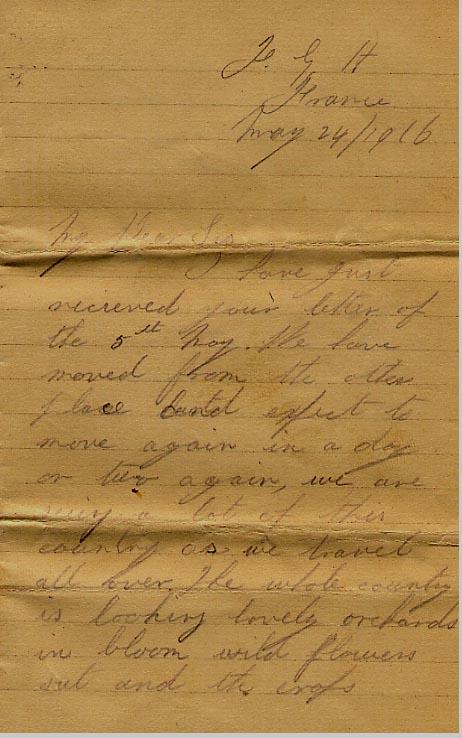 F. G H
France
May 24/1916
My Dear Sis
I have just
recieved your letter of
the 5th May. We have
moved from the other
place and expect to
move again in a day
or two again, we are
seing a lot of this
country as we travel
all over, The whole country
is looking lovely orchards
in bloom wild flowers
out and the crops